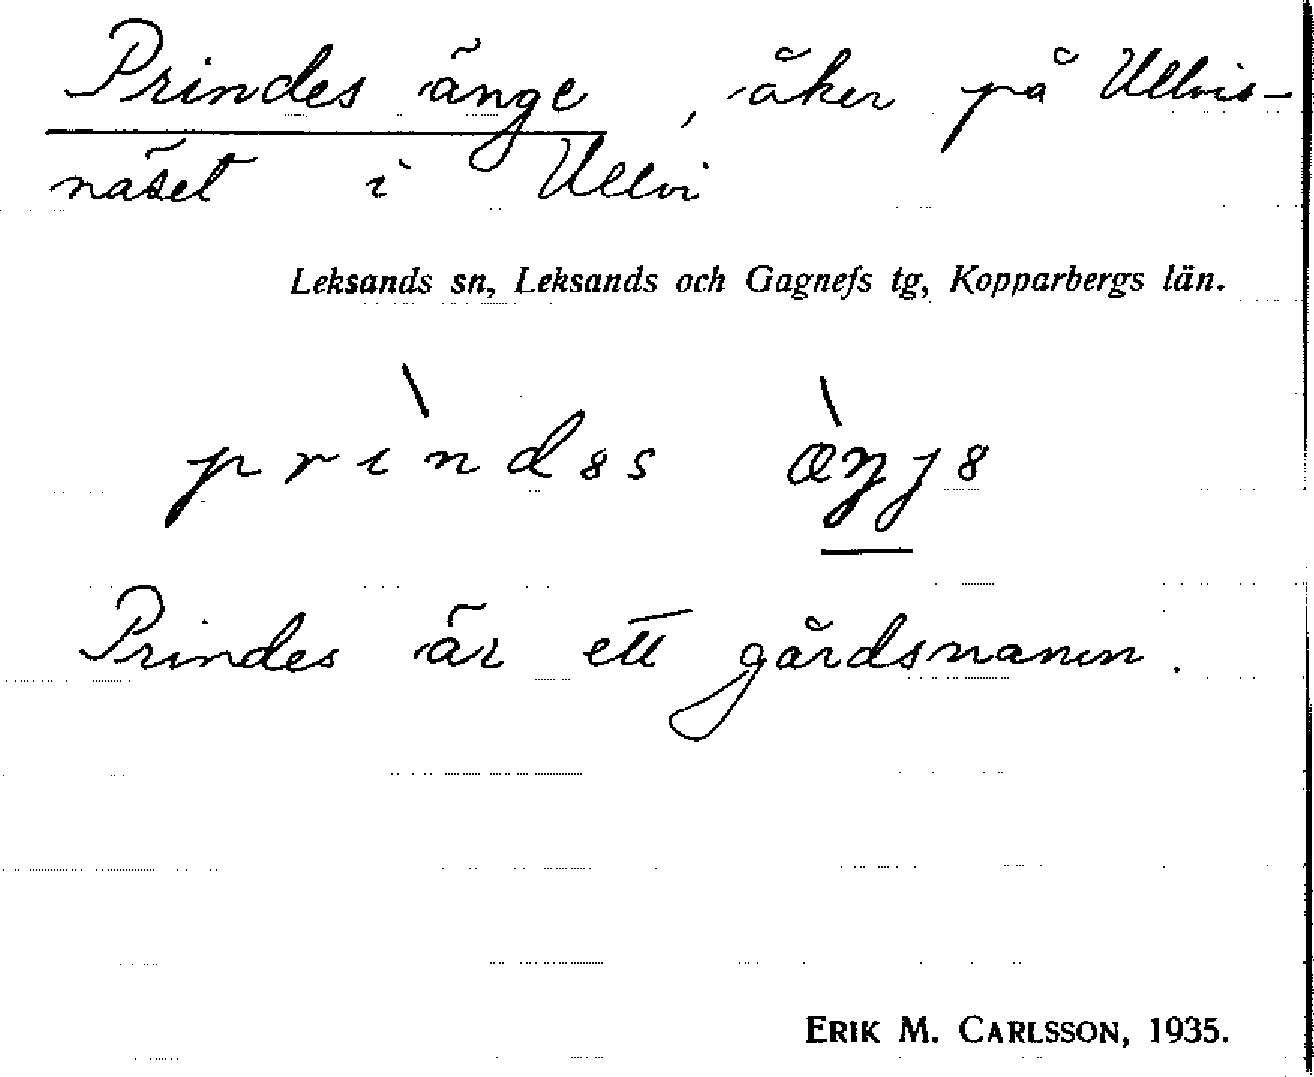 Prindes änge, åker på Ullvis-
näset i Ullvi
Leksands sn, Leksands och Gagnefs tg, Kopparbergs län.
prìndəs æ̀ŋɟə
Prindes är ett gårdsnamn.
ERIK M. CARLSSON, 1935.